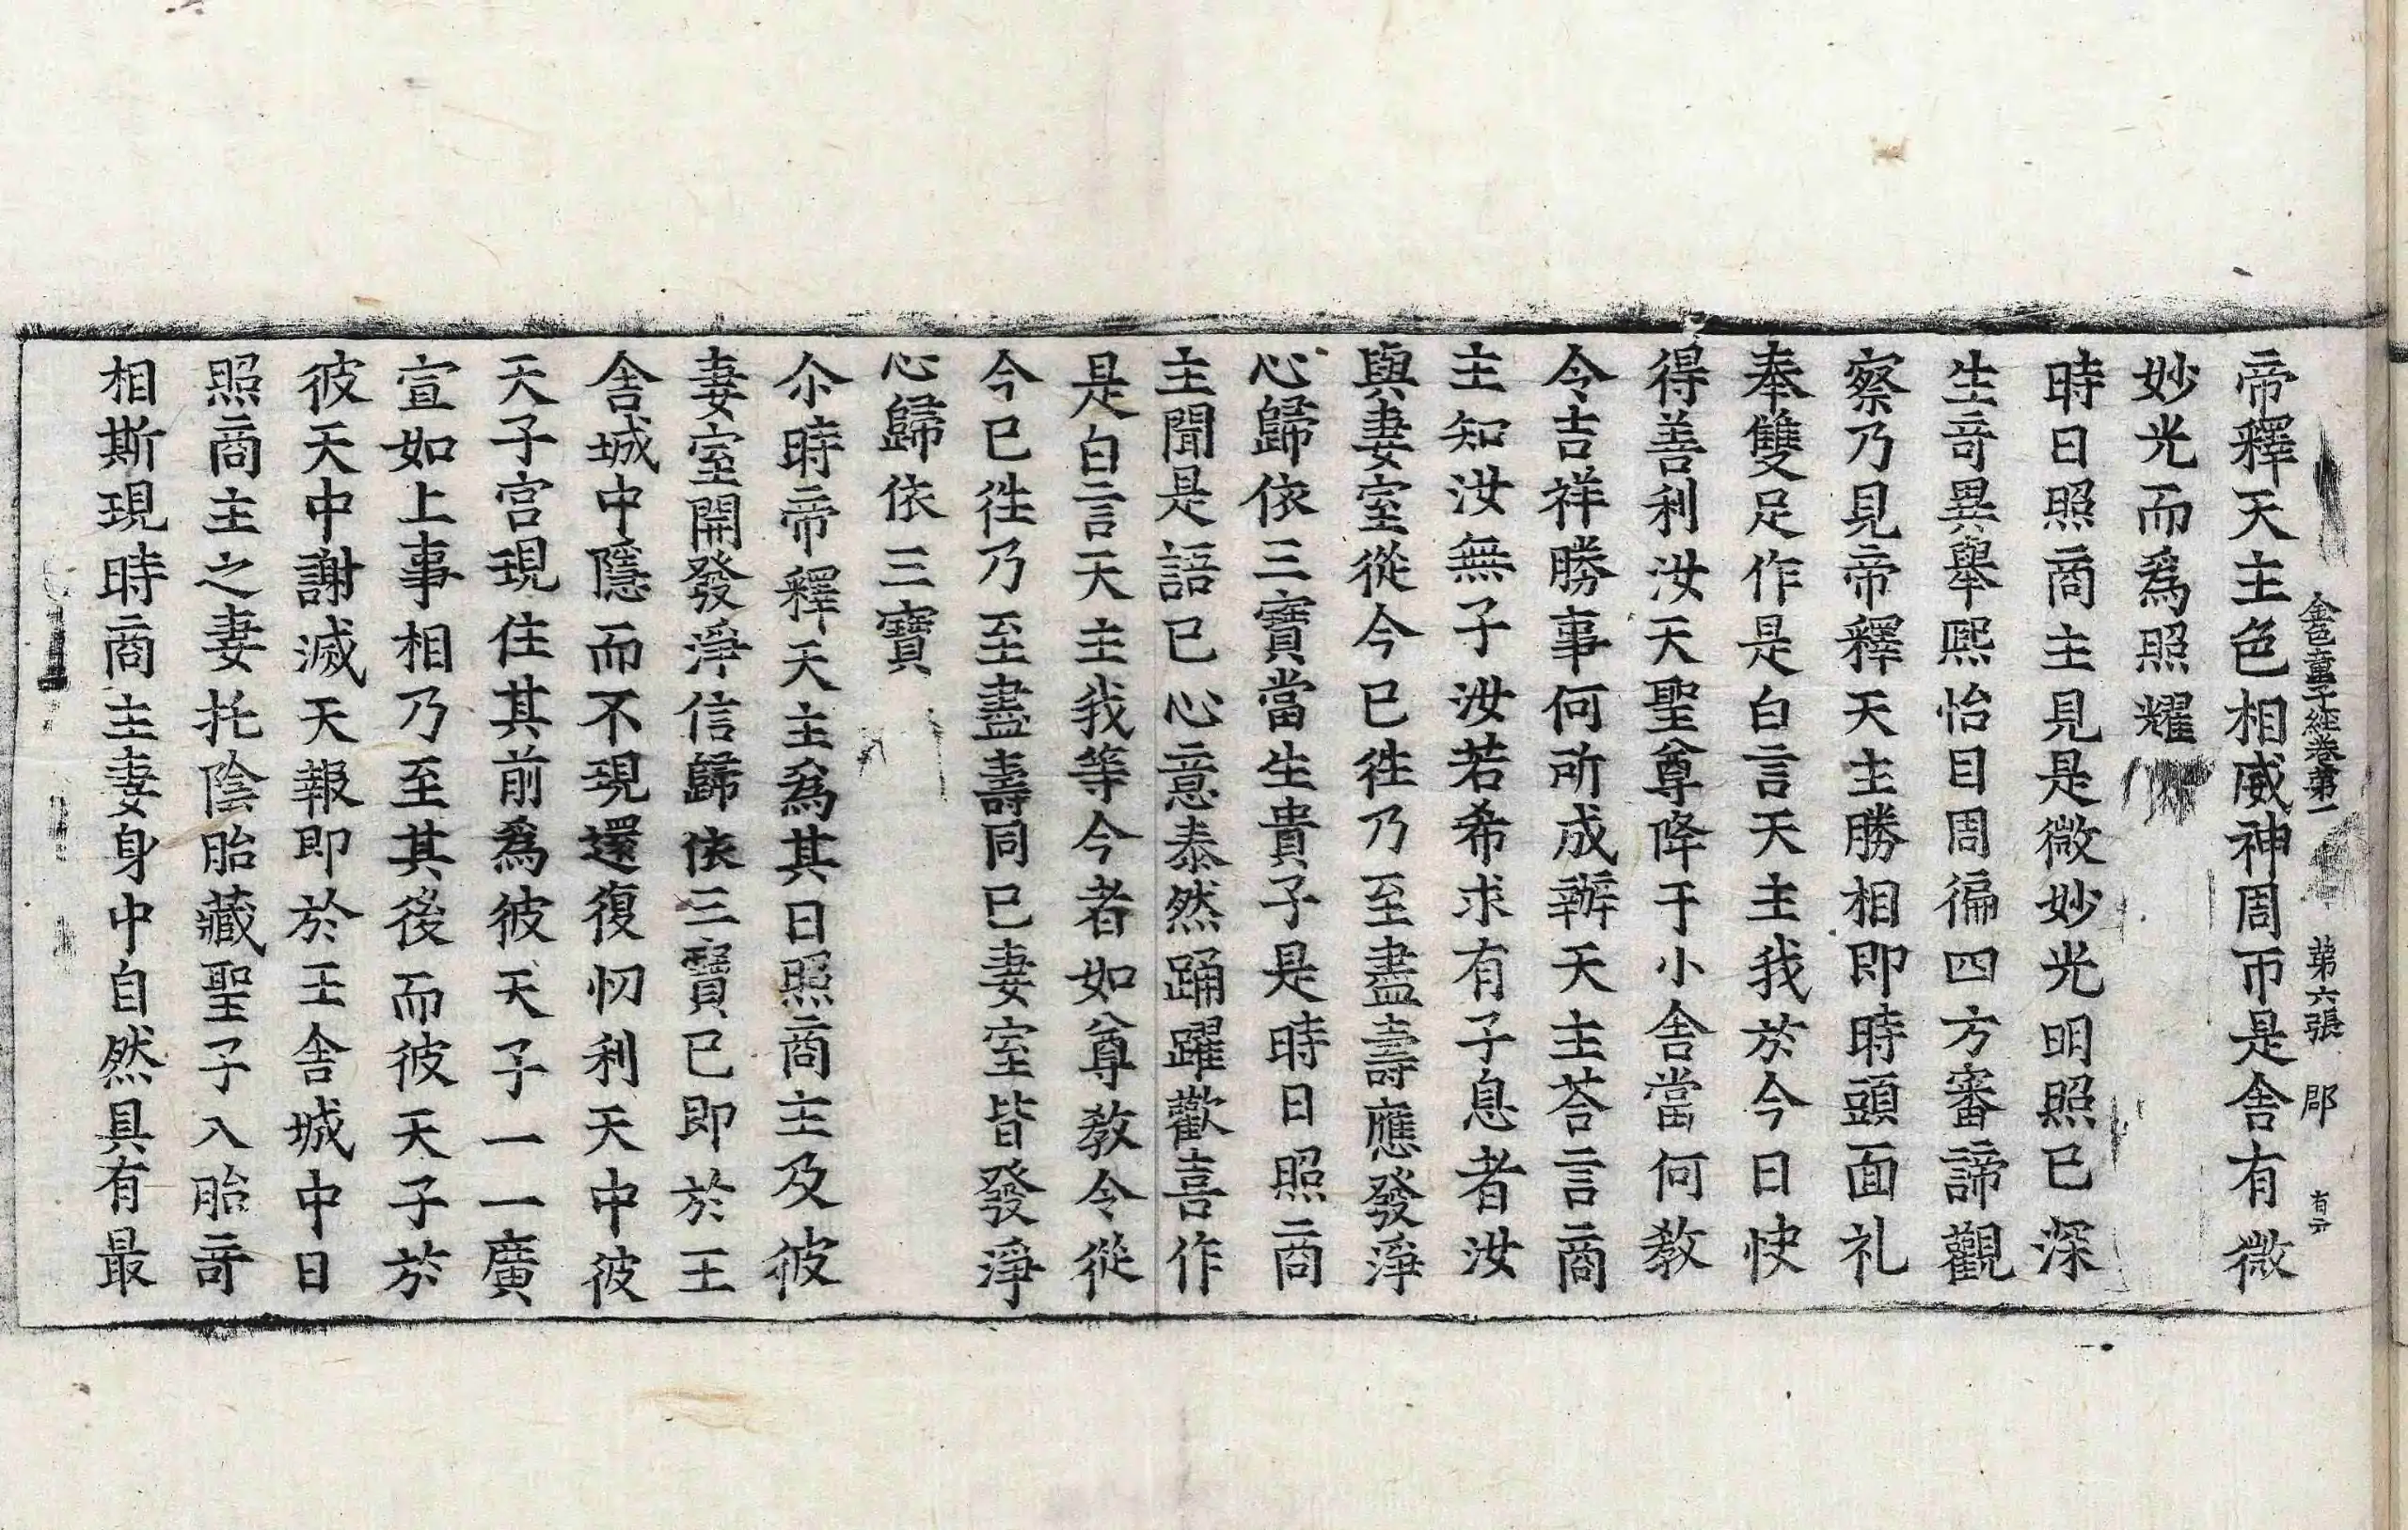 金色童子經卷第一 第六張 郡 有元
帝釋天主色相威神周帀是舍有微
妙光而爲照耀
時日照商主見是微妙光明照已深
生竒異舉熙怡目周徧四方審諦觀
察乃見帝釋天主勝相即時頭面礼
奉雙足作是白言天主我於今日快
得善利汝天聖尊降于小舍當何教
令吉祥勝事何所成辦天主荅言商
主知汝無子汝若希求有子息者汝
與妻室從今已徃乃至盡壽應發淨
心歸依三寶當生貴子是時日照商
主聞是語已心意泰然踊躍歡喜作
是白言天主我等今者如尊教令從
今已徃乃至盡壽同已妻室皆發淨
心歸依三寶
尒時帝釋天主爲其日照商主及彼
妻室開發淨信歸依三寶已即於王
舍城中隱而不現還復忉利天中彼
天子宫現住其前爲彼天子一一廣
宣如上事相乃至其後而彼天子於
彼天中謝滅天報即於王舍城中日
照商主之妻托陰胎藏聖子入胎竒
相斯現時商主妻身中自然具有最